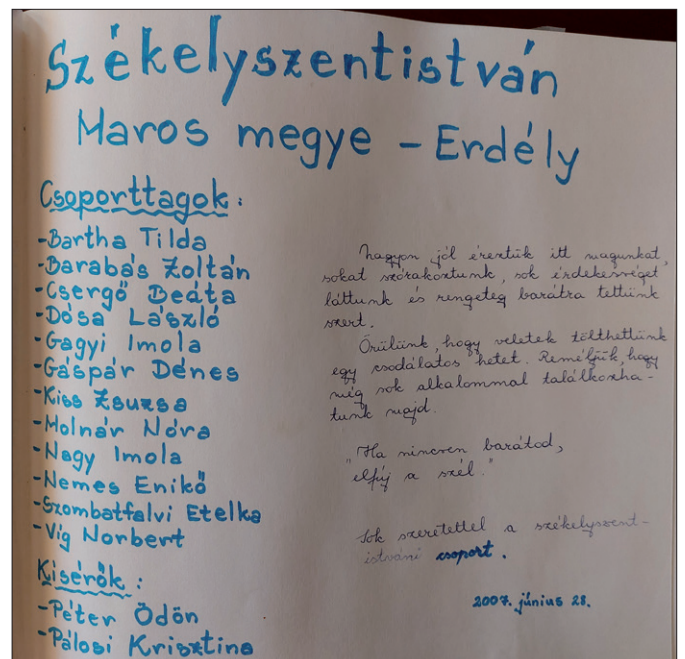 Székelyszentistván
Maros megye - Erdély
Csoporttagok:
-Bartha Tilda
-Barabás Zoltán
-Csergő Beáta
-Dósa László
-Gagyi Imola
-Gáspár Dénes
-Kiss Zsuzsa
-Molnár Nóra
-Nagy Imola
-Nemes Enikő
-Szombatfalvi Etelka
-Vig Norbert
Kisérők:
-Péter Ödön
-Pálosi Krisztina
Nagyon jól éreztük itt magunkat,
sokat szórakoztunk, sok érdekességet
láttunk és rengeteg barátra tettünk
szert.
Örülünk, hogy veletek tölthettünk
egy csodálatos hetet. Reméljük, hogy
még sok alkalommal találkozha-
tunk majd.
"Ha nincsen barátod,
elfúj a szél."
Sok szeretettel a székelyszent-
istváni csoport.
2007. június 28.